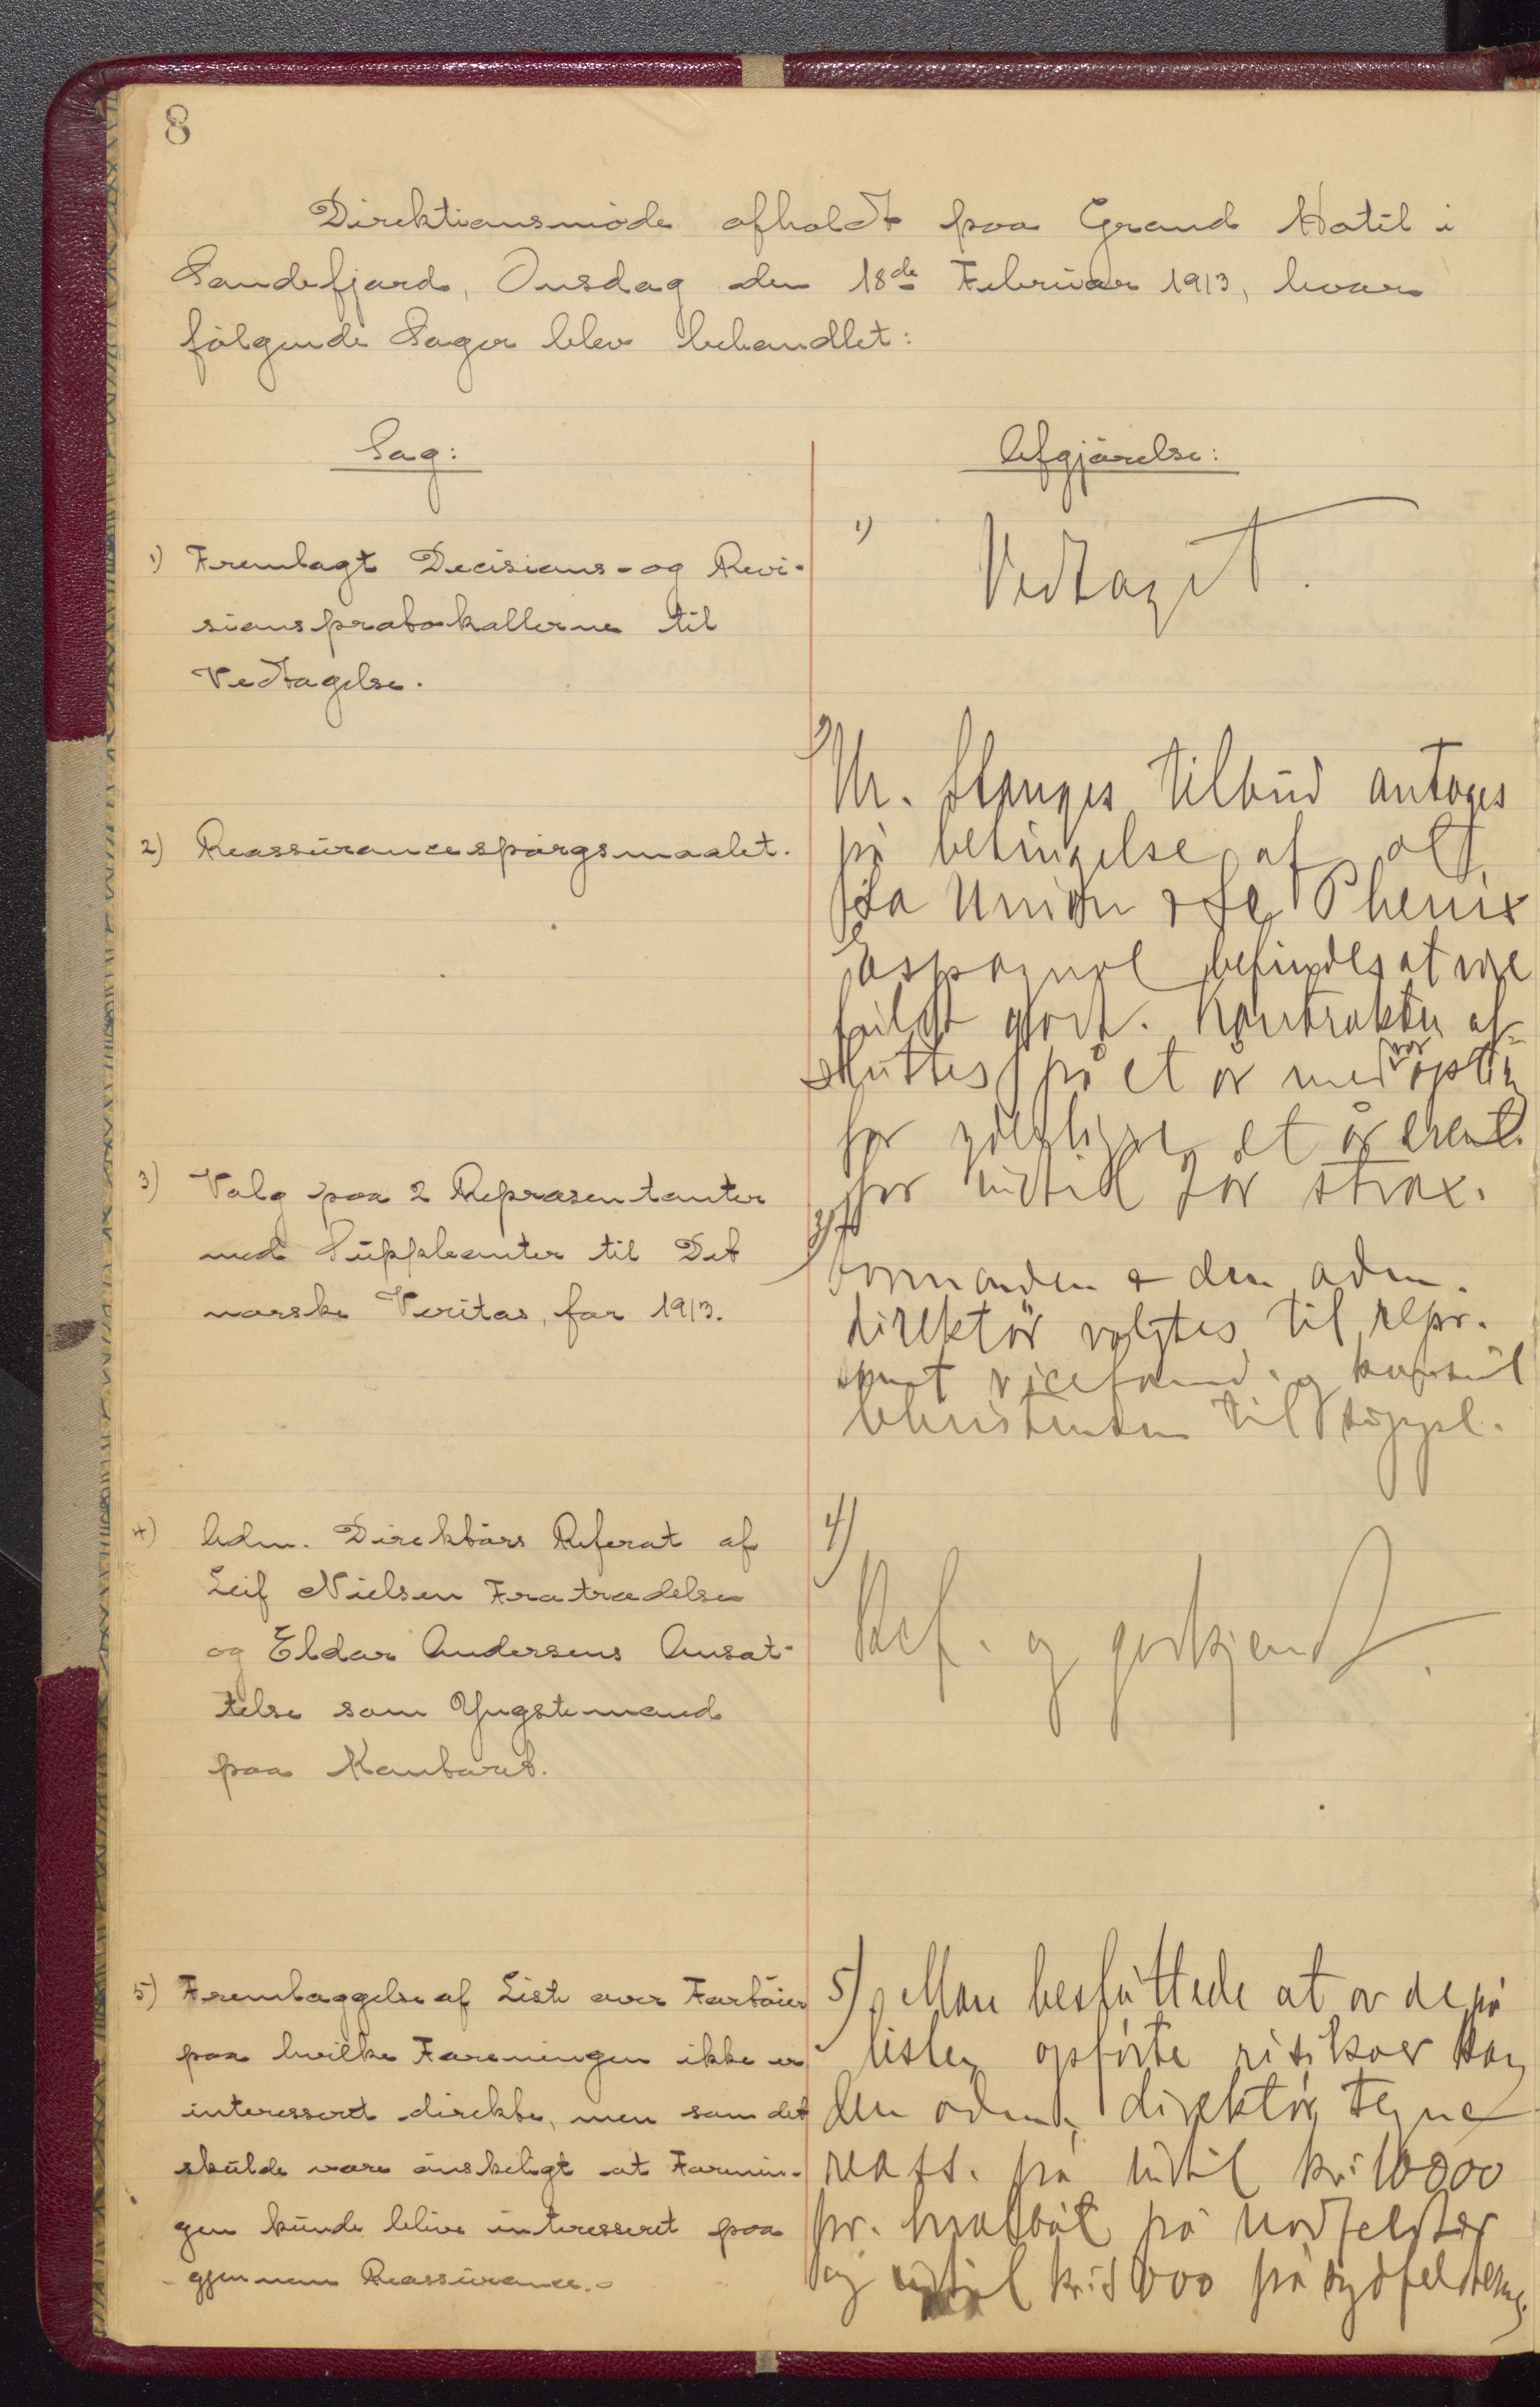 8
Direktionsmøde afholdt paa Grand Hotel i
Sandefjord, Onsdag den 18de Februar 1913, hvor
følgende Sager blev behandlet:
Sag:
1) Fremlagt Decisions- og Revi-
sionsprotokollerne til
Vedtagelse.
2) Reassurancespørgsmaalet.
3) Valg paa 2 Repræsentanter
med Suppleanter til Det
norske Veritas, for 1913.
4) Adm. Direktørs Referat af
Leif Nielsen Fratrædelse
og Eldar Andersens Ansæt-
telse som Yngstemand
paa Kontoret.
5) Fremlæggelse af Liste over Fartøier
paa hvilke Foreningen ikke er
interesseret direkte, men som det
skulde være ønskeligt at Forenin-
gen kunde blive interesseret paa
gjennem Reassurance.-
Afgjørelse:
1) Vedtaget.
2) Hr. Stanges tilbud antages
på betingelse af at
La Union & Le Phenix
Espagnol befindes at være
fuldt god. Kontrakten af-
sluttes på et år med vor option
for yderligere et år event.
for indtil 2 år strax.
3) Formanden & den adm.
direktør valgtes til repr.
samt viceformd. og konsul
Christensen til suppl.
4) Ref. og godkjendt.
5) Man besluttede at av de på
listen opførte risikoer kan
den adm. direktør tegne
reass. på indtil kr: 10000
pr. hvalbåt på nordfelter
og indtil kr: 5000 på sydfelterne.